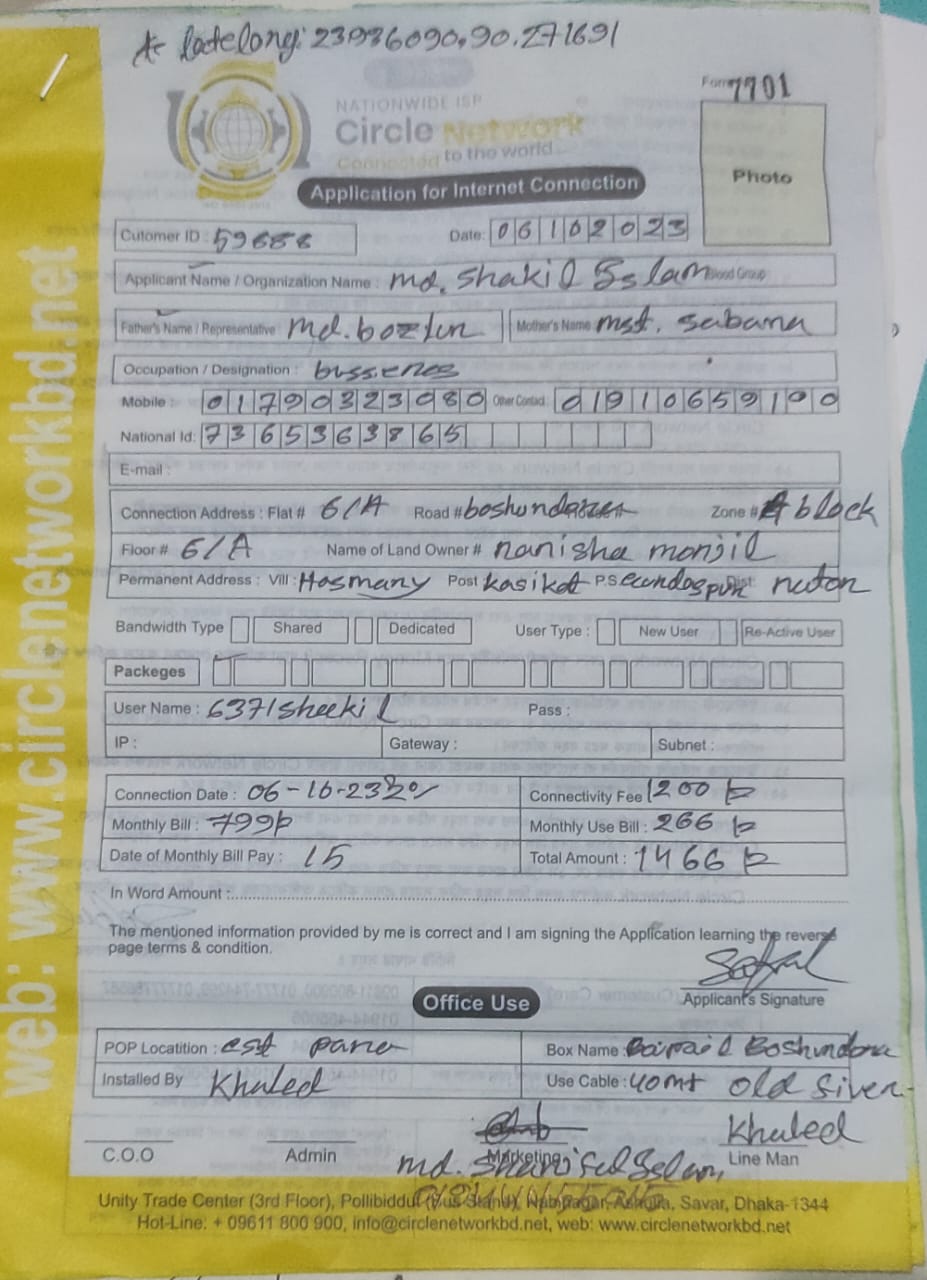 latelong: 23936090,90.271691
Form 7701
NATIONWIDE ISP
Circle Network
Connected to the world
Photo
Application for Internet Connection
Cutomer ID : 59688 Date: 06102023
Applicant Name / Organization Name : md. Shakil Sslam Blood Group
Father's Name / Representative md. bozlun Mother's Name mst. Sabana
Occupation / Designation : bussenes
Mobile : 01790323080 Other Contact : 01910659190
National Id: 7365363865
E-mail :
Connection Address : Flat # 6/A Road # boshundara Zone # A block
Floor # 6/A Name of Land Owner # nanisha monjil
Permanent Address : Vill : Hasmany Post kasikat P.S Dist:
Bandwidth Type Shared Dedicated User Type : New User Re-Active User
Packeges
User Name : 6371sheekil Pass :
IP : Gateway : Subnet :
Connection Date : 06-10-23 Connectivity Fee 1200
Monthly Bill : 799 Monthly Use Bill : 266
Date of Monthly Bill Pay : 15 Total Amount : 1466
In Word Amount :
The mentioned information provided by me is correct and I am signing the Application learning the reverse
page terms & condition.
Applicant's Signature
Office Use
POP Locatition : est para Box Name : Baipail Boshundora
Installed By Khaled Use Cable : 40mt old
Khaled
C.O.O Admin Marketing Line Man
md. Shariful Selam
Unity Trade Center (3rd Floor), Pollibiddut (Bus Stand), Nabinagar, Ashulia, Savar, Dhaka-1344
Hot-Line: + 09611 800 900, info@circlenetworkbd.net, web: www.circlenetworkbd.net
web: www.circlenetworkbd.net